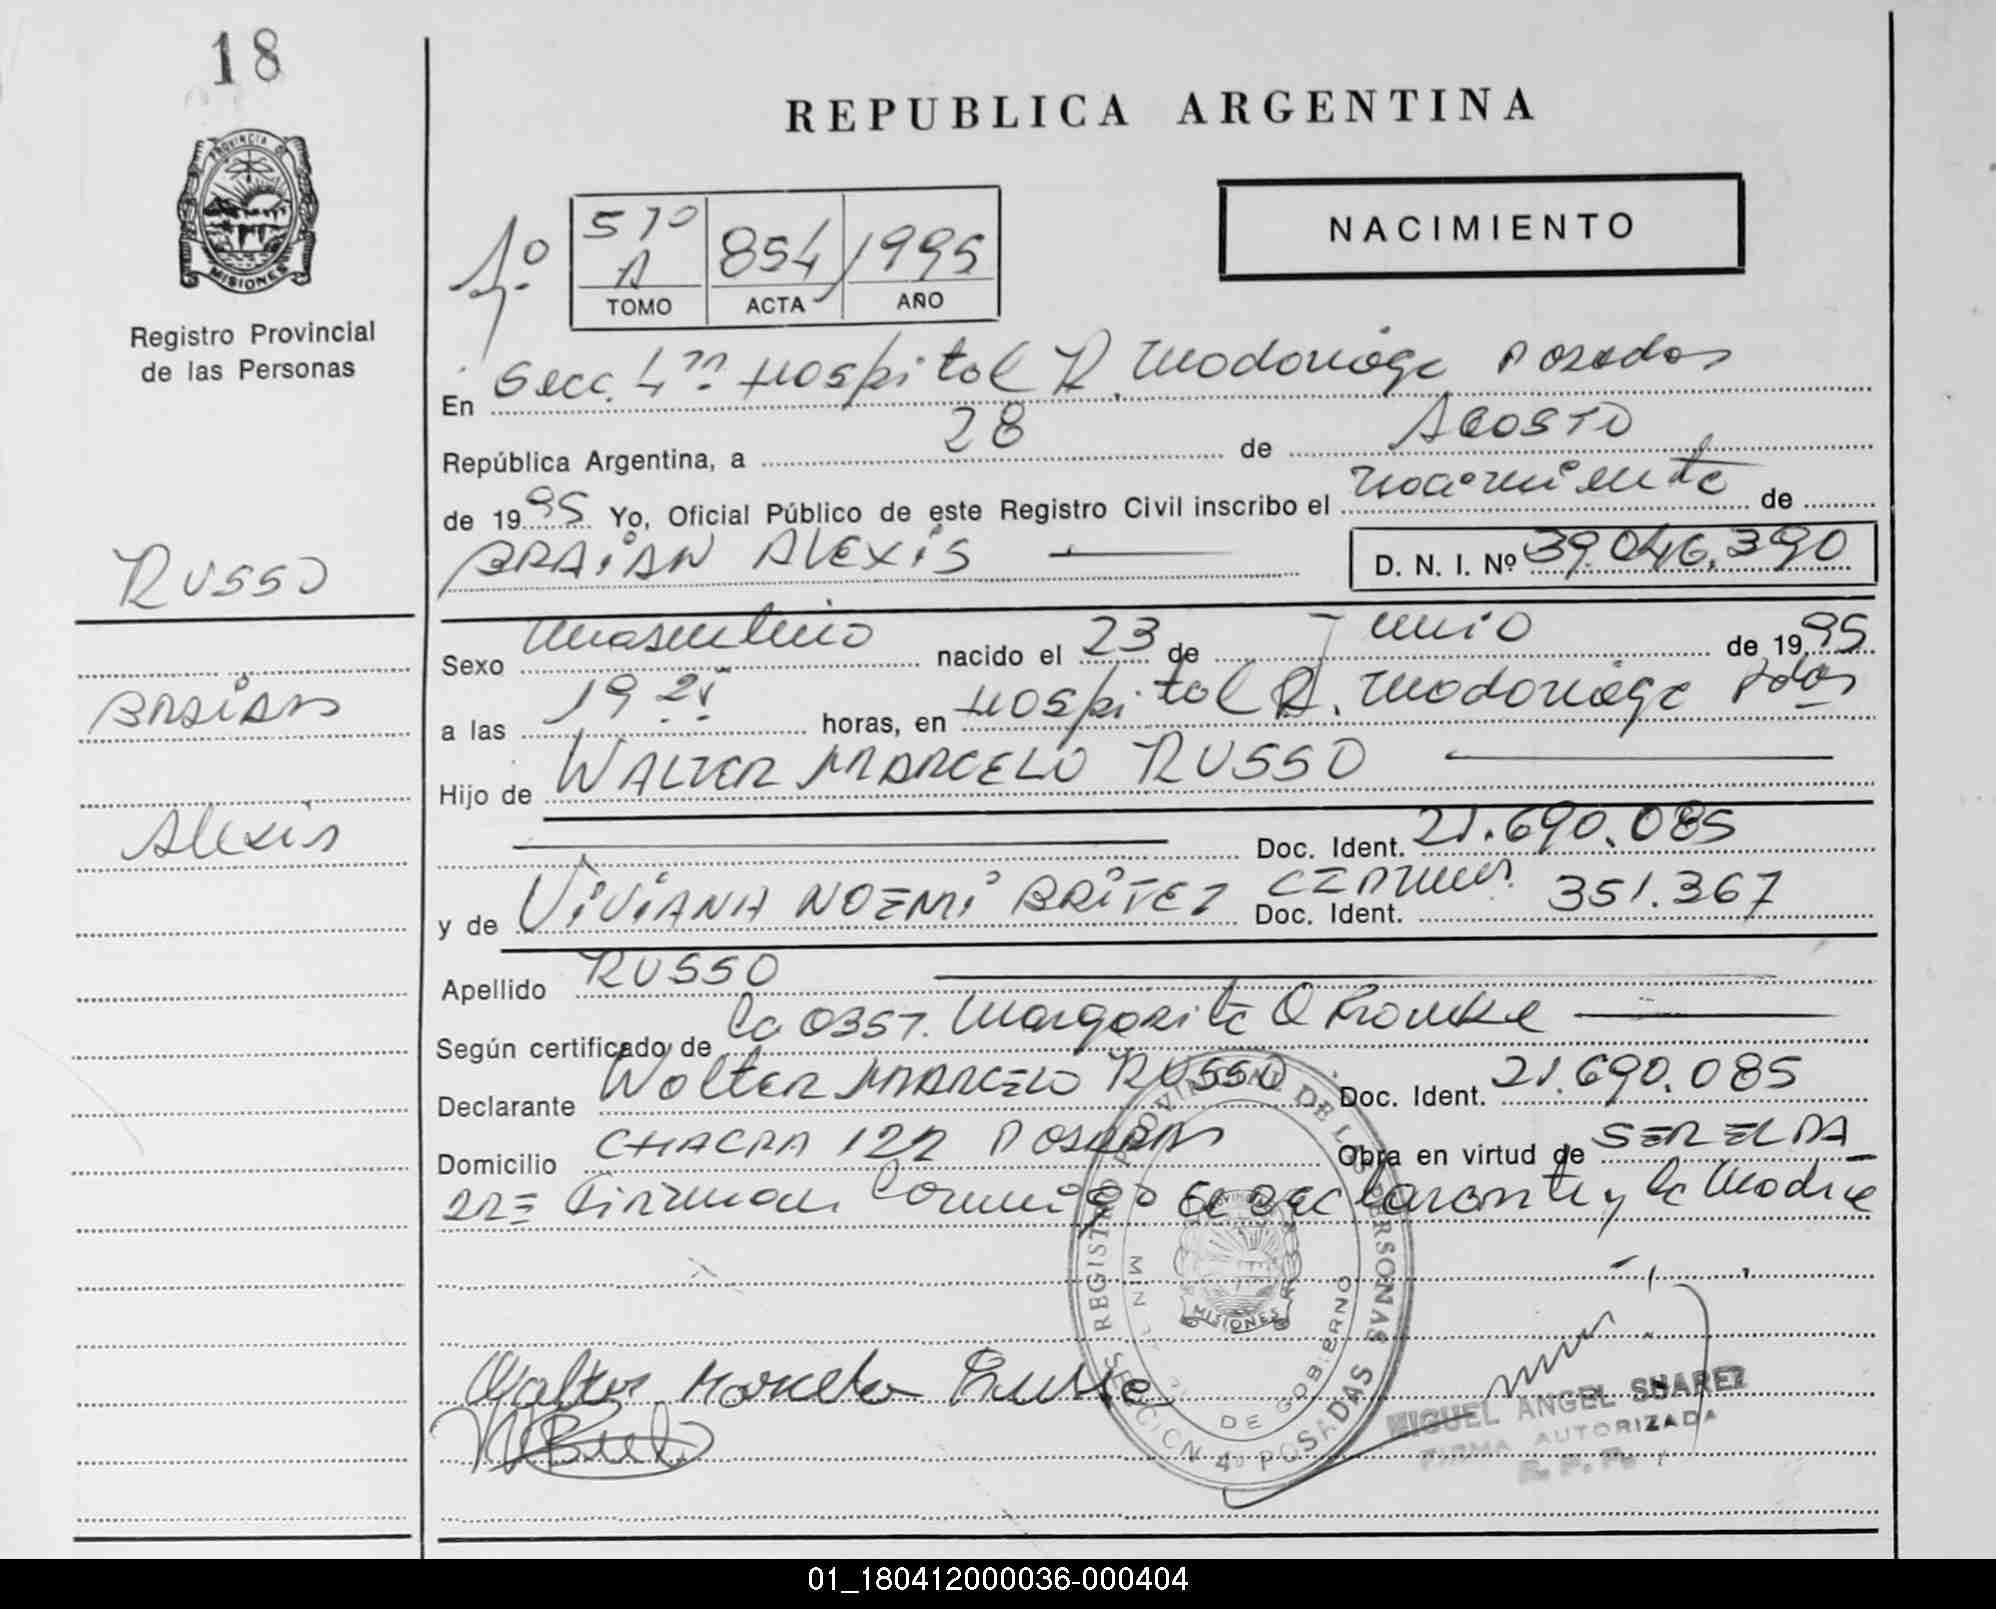 18
REPUBLICA ARGENTINA
PROVINCIA DE
MISIONES
Registro Provincial
de las Personas
NACIMIENTO
1º
A 854 1995
TOMO ACTA AÑO
En Secc. 4ta Hospital R. Madariaga Posadas
República Argentina, a 28 de AGOSTO
de 1995 Yo, Oficial Público de este Registro Civil inscribo el nacimiento de
RUSSO
BRAIAN ALEXIS
D. N. I. Nº 39.046.390
Sexo masculino nacido el 23 de Junio de 1995
BRAIAN
a las 19 horas, en Hospital R. Madariaga Pdas
Hijo de WALTER MARCELO RUSSO
Alexis
Doc. Ident. 21.690.085
y de VIVIANA NOEMI BRITEZ Doc. Ident. 351.367
Apellido RUSSO
Según certificado de la OBST. Margarita
Declarante Walter MARCELO RUSSO Doc. Ident. 21.690.085
Domicilio CHACRA 122 POSADAS Obra en virtud de SER EL PA
DRE Firman conmigo el declarante y la Madre
REGISTRO PROVINCIAL DE LAS PERSONAS
SECCION 4º POSADAS
DE GOBIERNO
MISIONES
Walter Marcelo Russo
MIGUEL ANGEL SUAREZ
FIRMA AUTORIZADA
R. P. P.
01_180412000036-000404